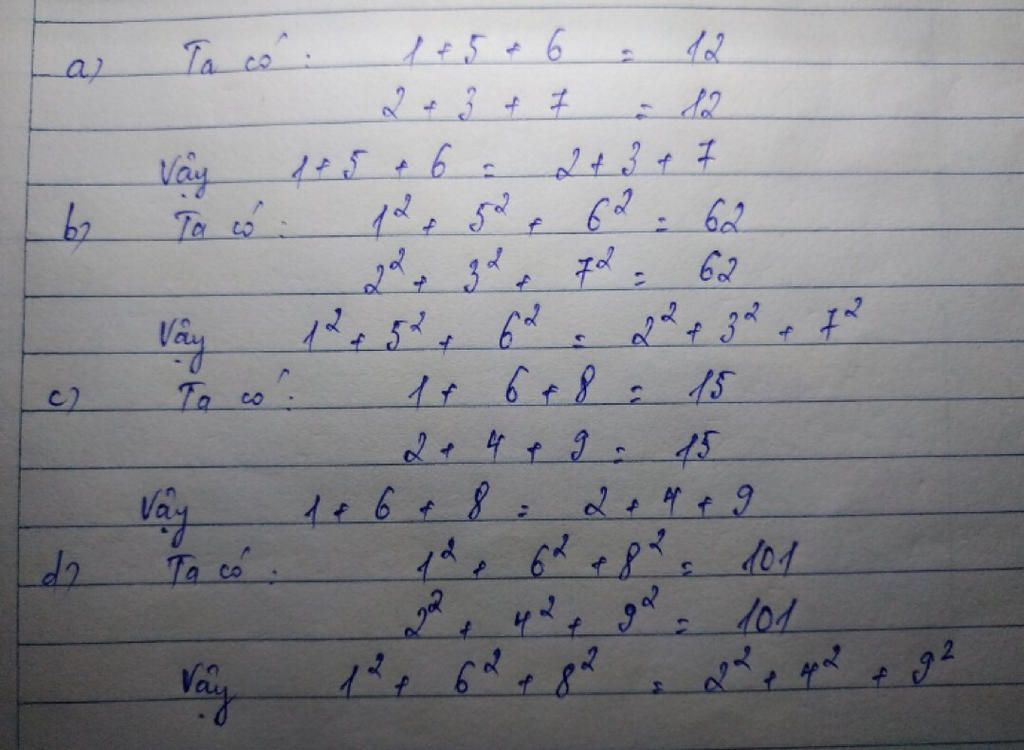 a) Ta có : 1 + 5 + 6 = 12
2 + 3 + 7 = 12
Vậy 1 + 5 + 6 = 2 + 3 + 7
b) Ta có : 1² + 5² + 6² = 62
2² + 3² + 7² = 62
Vậy 1² + 5² + 6² = 2² + 3² + 7²
c) Ta có : 1 + 6 + 8 = 15
2 + 4 + 9 = 15
Vậy 1 + 6 + 8 = 2 + 4 + 9
d) Ta có : 1² + 6² + 8² = 101
2² + 4² + 9² = 101
Vậy 1² + 6² + 8² = 2² + 4² + 9²